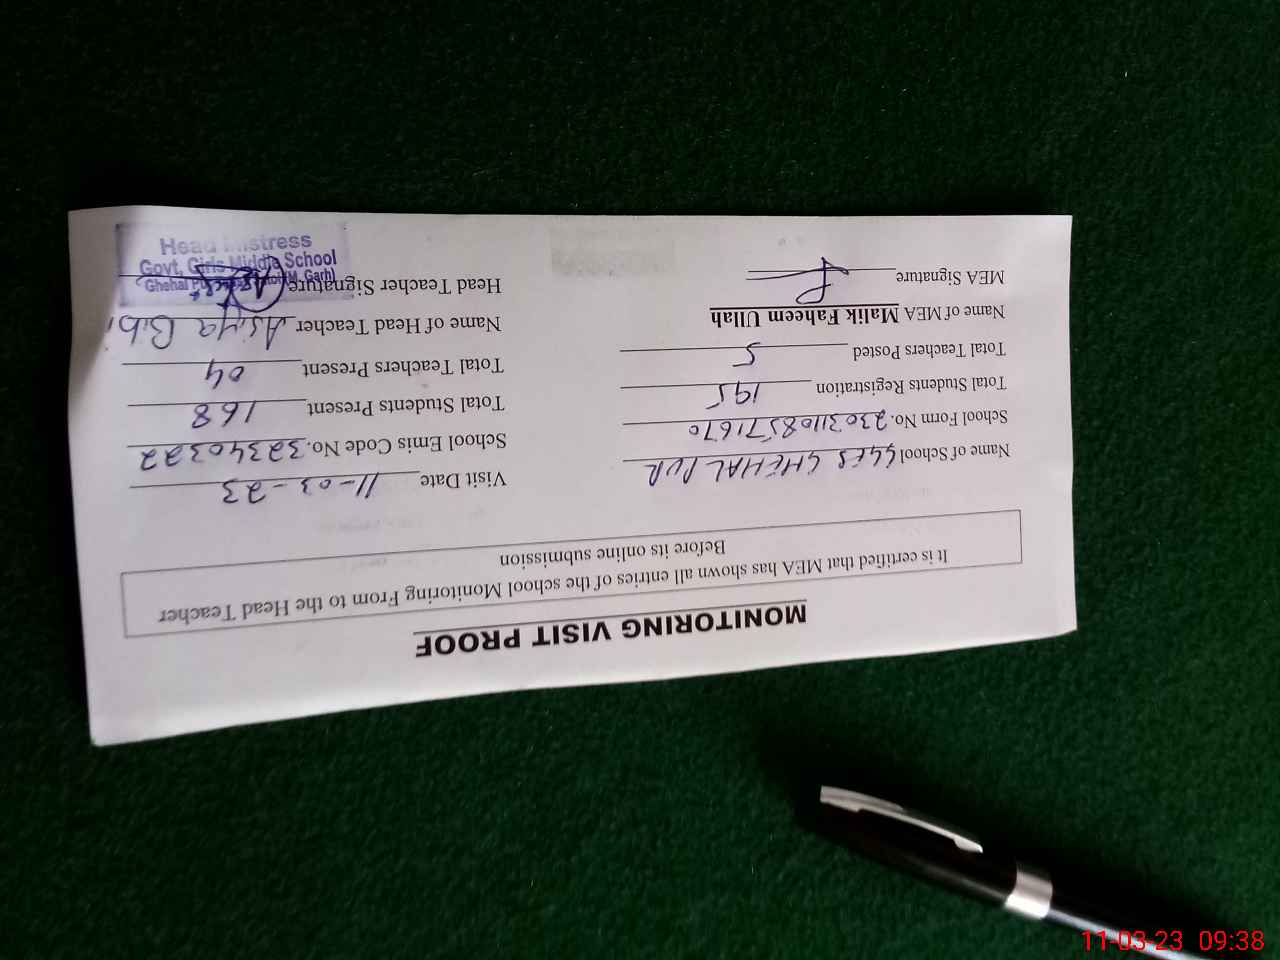 MONITORING VISIT PROOF
It is certified that MEA has shown all entries of the school Monitoring From to the Head Teacher
Before its online submission
Name of School GGES GHEHAL PUR
Visit Date 11-03-23
School Form No. 2303110857 1670
School Emis Code No. 32340322
Total Students Registration 195
Total Students Present 168
Total Teachers Posted 5
Total Teachers Present 04
Name of MEA Malik Faheem Ullah
Name of Head Teacher Asiya Bibi
MEA Signature
Head Teacher Signature
Head Mistress
Govt, Girls Middle School
Ghehal (M. Garh)
11-03-23 09:38